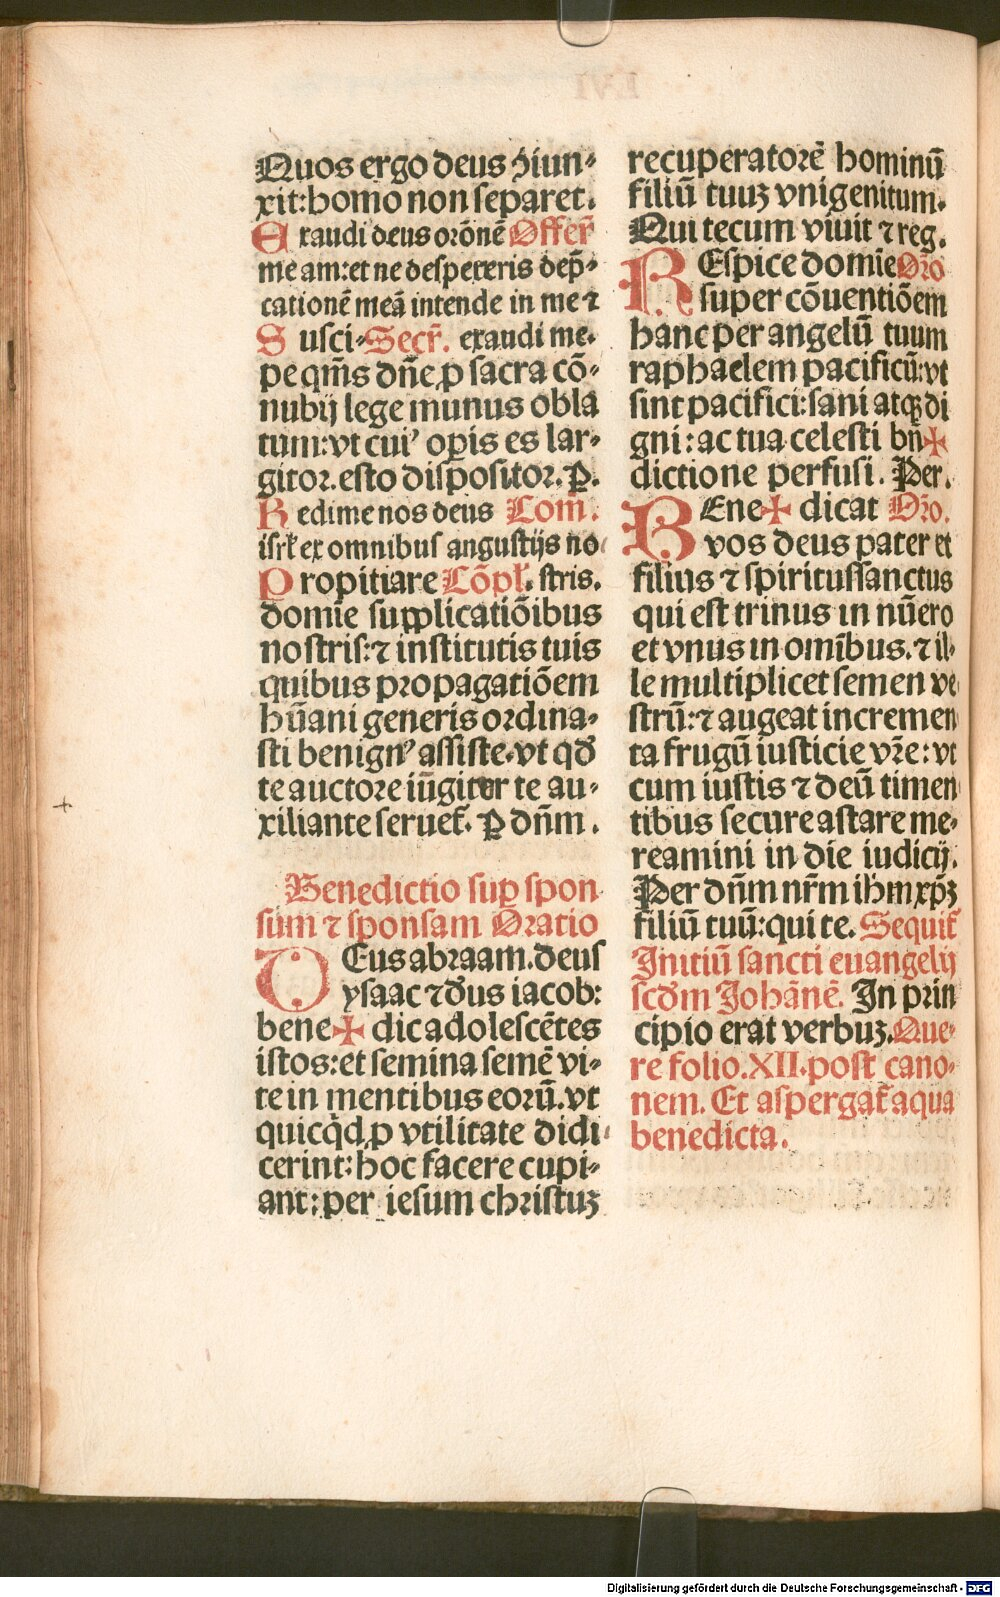 Quos ergo deus ꝯiun⸗
xit: homo non separet.
Exaudi deus orōnē Offer̄
me am: et ne despexeris dep̄⸗
cationē meā intende in me ⁊
Susci⸗ Secr̄. exaudi me.
pe qm̄s dn̄e ꝓ sacra cō⸗
nubij lege munus obla
tum: vt cuiꝰ oꝑis es lar⸗
gitor. esto dispositor. P̲.
Redime nos deus Com̄.
isrl̓ ex omnibus angustijs no
Propitiare Cōpl̓. stris.
domīe supplicatiōibus
nostris: ⁊ institutis tuis
quibus propagatiōem
hūani generis ordina⸗
sti benignꝰ assiste. vt qd̓
te auctore iūgitur te au⸗
xiliante seruet̄. P̲ dn̄m.
Benedictio suꝑ spon
sum ⁊ sponsam Oratio
DEus abraam. deus
ysaac ⁊ d̓us iacob:
bene✠ dic adolescētes
istos: et semina semē vi⸗
te in mentibus eorū. vt
quicq̄d ꝓ vtilitate didi⸗
cerint: hoc facere cupi⸗
ant: per iesum christuꝫ
recuperatorē hominū
filiū tuuꝫ vnigenitum.
Qui tecum viuit ⁊ reg.
REspice domīe Or̄o
super cōuentiōem
hanc per angelū tuum
raphaelem pacificū: vt
sint pacifici: sani atqꝫ di
gni: ac tua celesti bn̄✠
dictione perfusi. Per.
BEne✠ dicat Or̄o.
vos deus pater et
filius ⁊ spiritussanctus
qui est trinus in nūero
et vnus in omībus. ⁊ il⸗
le multiplicet semen ve
strū: ⁊ augeat incremen
ta frugū iusticie vr̄e: vt
cum iustis ⁊ deū timen
tibus secure astare me⸗
reamini in die iudicij.
Per dn̄m nr̄m ih̄m xp̄ꝫ
filiū tuū: qui te. Sequit̄
Initiū sancti euangelij
scd̓m Johānē. In prin
cipio erat verbuꝫ. Que⸗
re folio. XII. post cano⸗
nem. Et aspergat̄ aqua
benedicta.
Digitalisierung gefördert durch die Deutsche Forschungsgemeinschaft - DFG